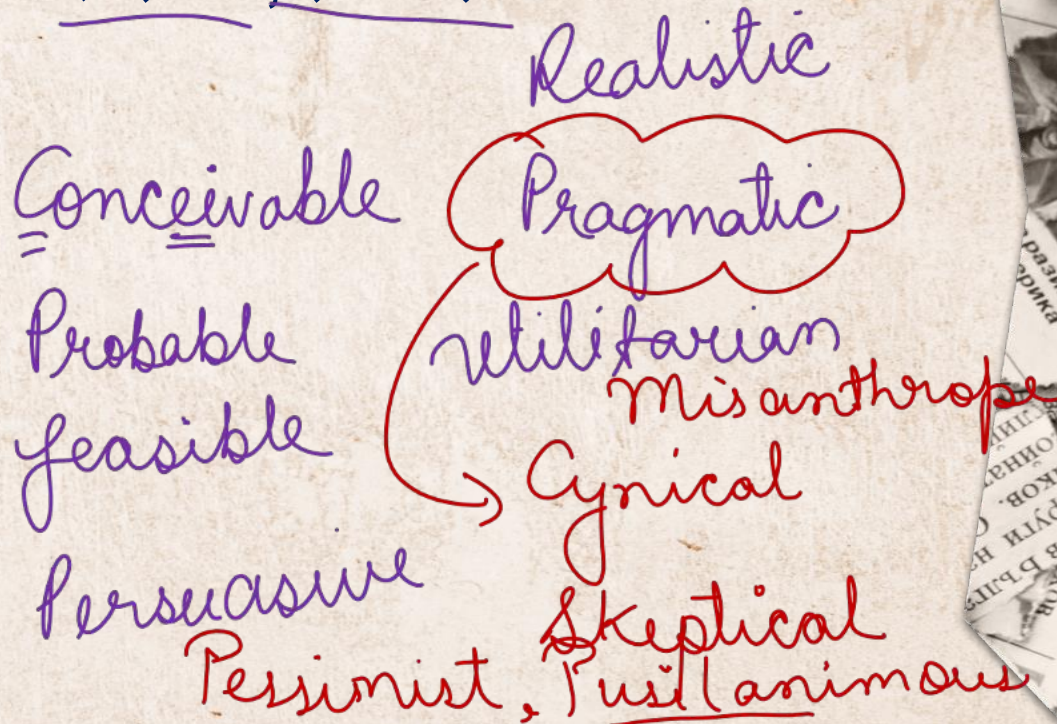 Realistic
Conceivable
Pragmatic
Probable
Utilitarian
Misanthrope
Feasible
Cynical
Persuasive
Skeptical
Pessimist, Pusillanimous